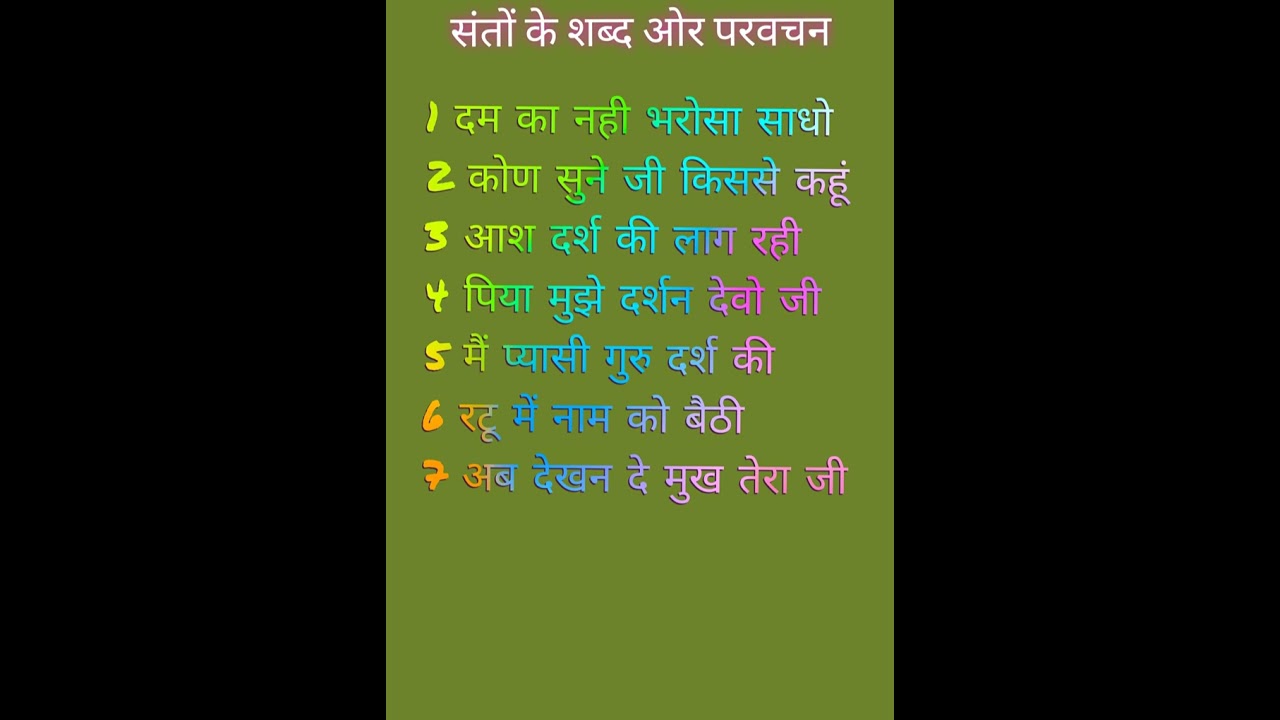 संतों के शब्द ओर परवचन
1 दम का नही भरोसा साधो
2 कोण सुने जी किससे कहूं
3 आश दर्श की लाग रही
4 पिया मुझे दर्शन देवो जी
5 मैं प्यासी गुरु दर्श की
6 रटू में नाम को बैठी
7 अब देखन दे मुख तेरा जी